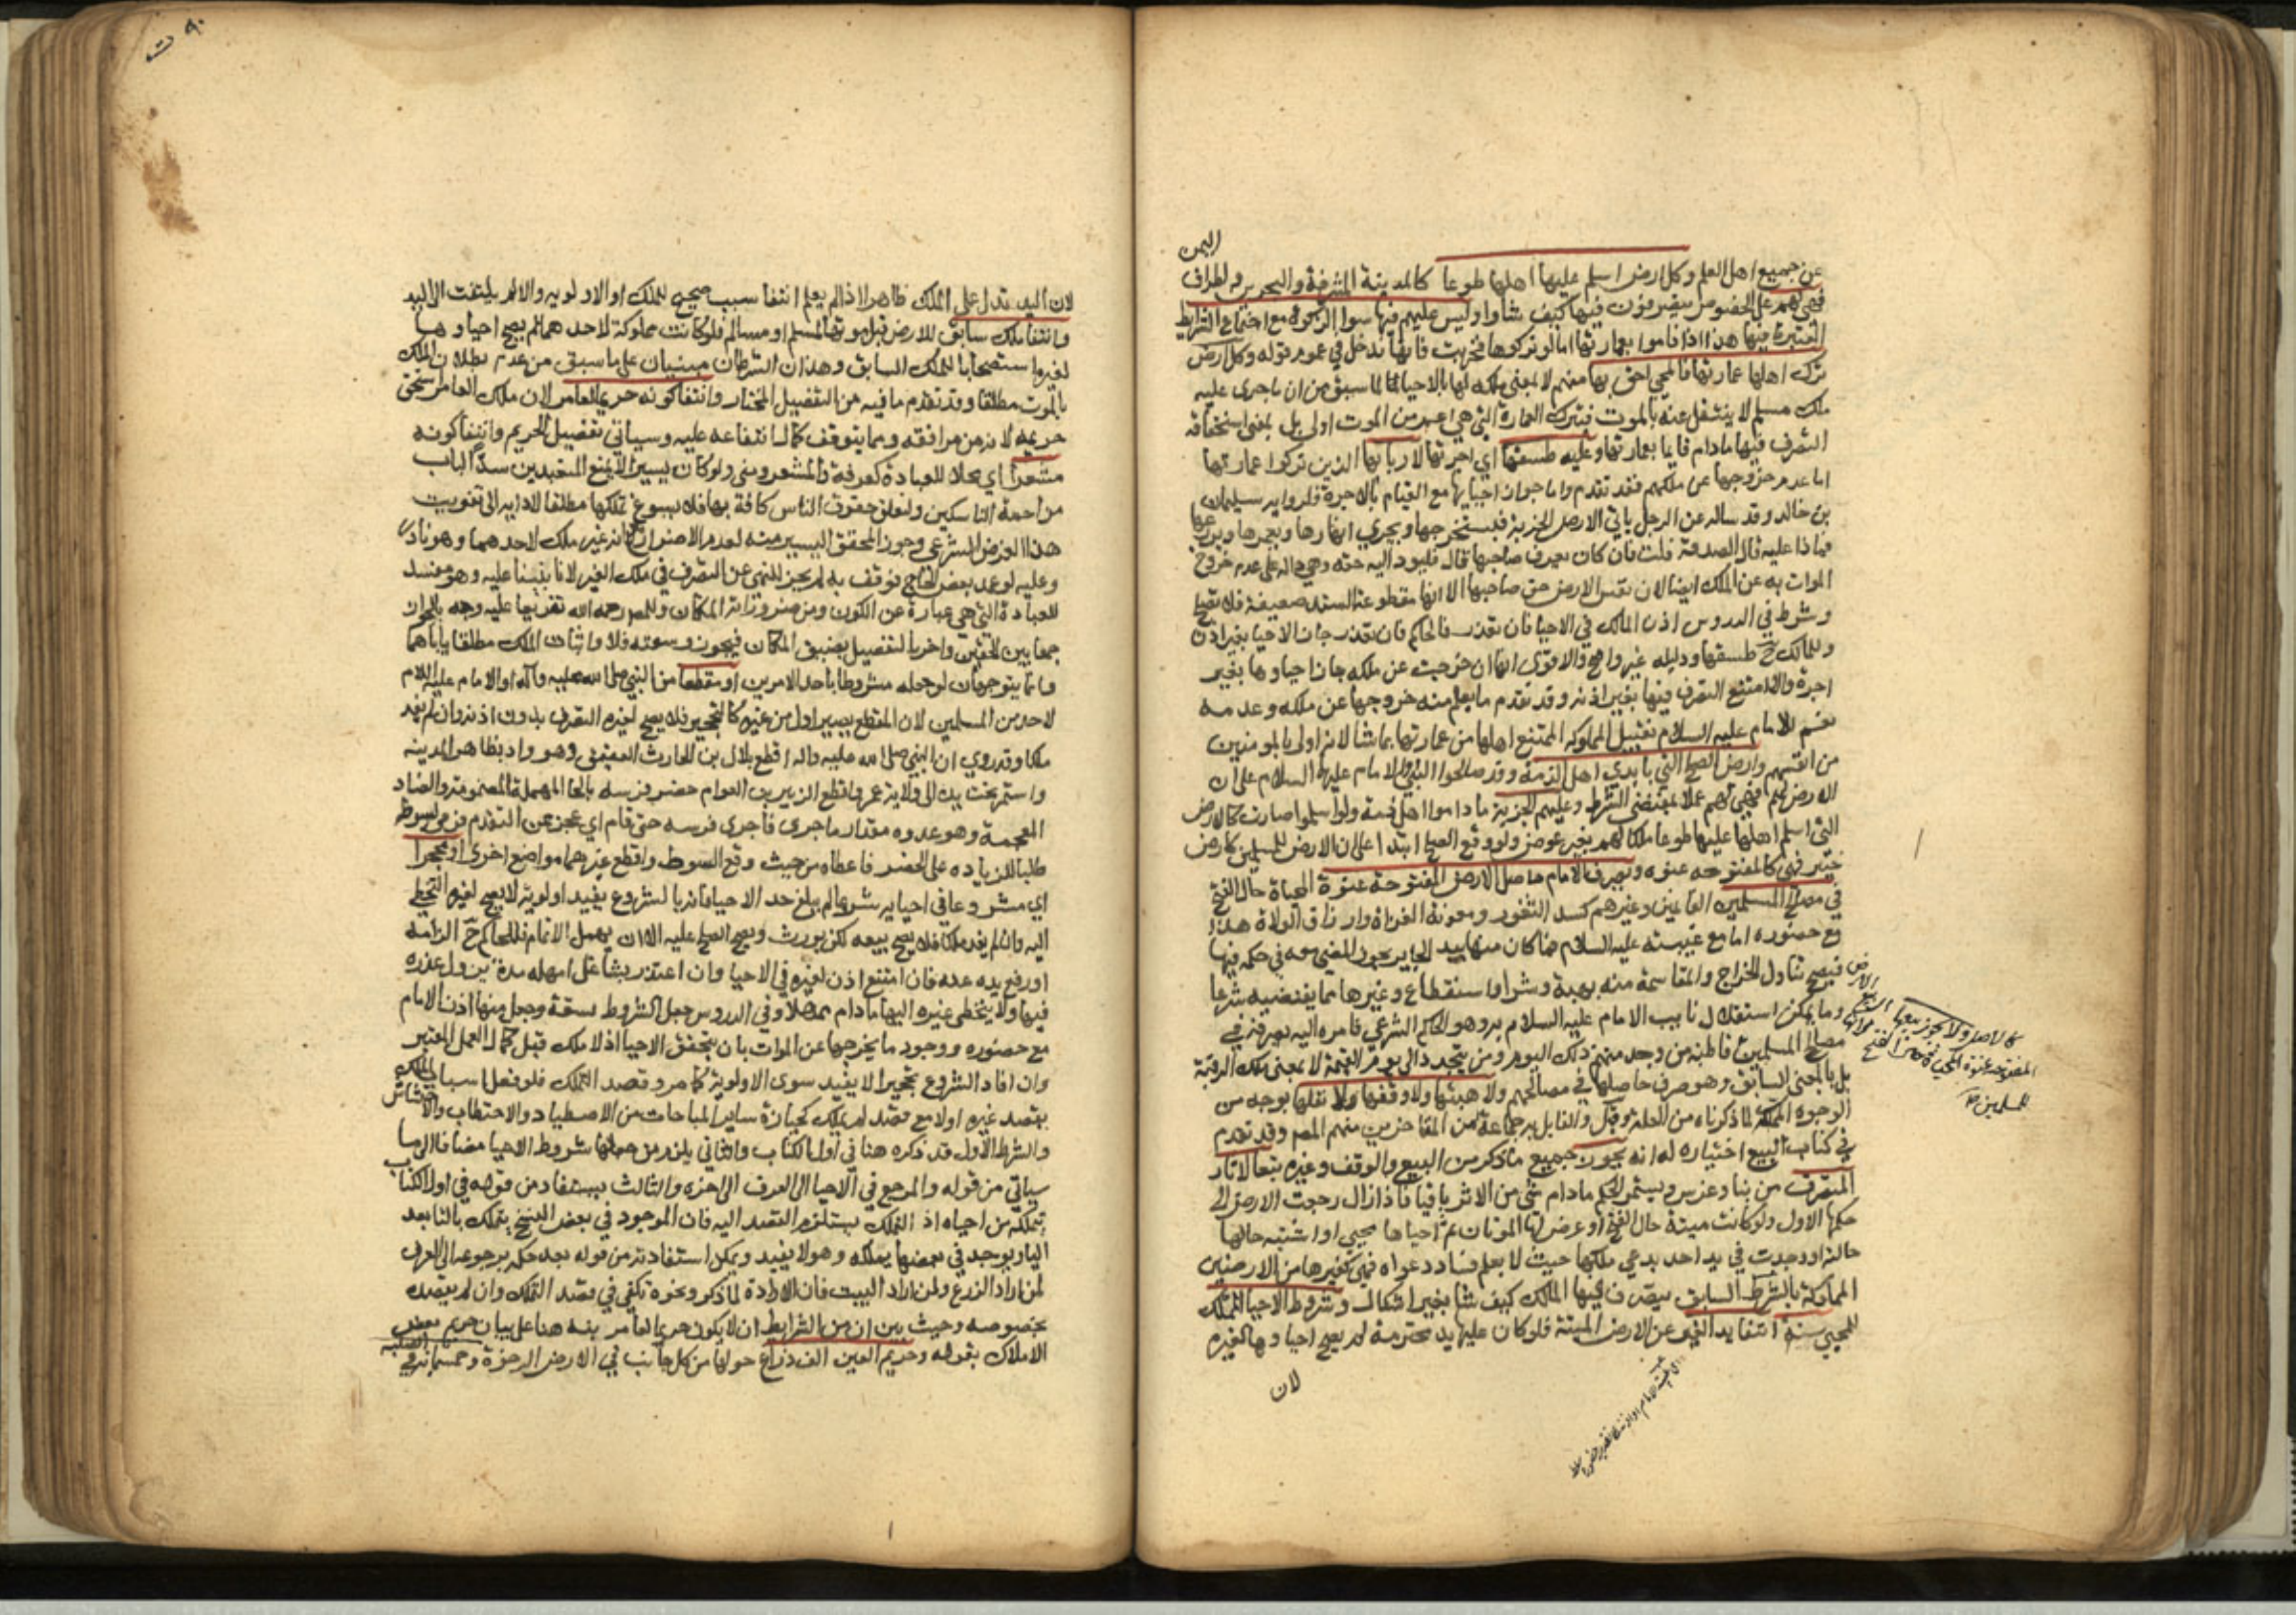 اليمن
عن جميع اهل العلم وكل ارض اسلم عليها اهلها طوعا كالمدينة المشرفة والبحرين واطراف
فهي لهم على الخصوص يتصرفون فيها كيف شاوا وليس عليهم فيها سوا الزكوة مع اجتماع الشرايط
المعتبرة فيها هذا اذا قاموا بعمارتها اما لو تركوها فخربت فانها تدخل في عموم قوله وكل ارض
ترك اهلها عمارتها فالمحيي احق بها منهم لا بمعنى ملكه لها بالاحيا لما سبق من ان ما جرى عليه
ملك مسلم لا ينتقل عنه بالموت فبترك العمارة التي هي اعم من الموت اولى بل بمعنى استحقاقه
التصرف فيها مادام قايما بعمارتها وعليه طسقها اي اجرتها لاربابها الذين تركوا عمارتها
اما عدم خروجها عن ملكهم فقد تقدم واما جواز احيايها مع القيام بالاجرة فلرواية سليمان
بن خالد وقد ساله عن الرجل ياتي الارض الخربة فيستخرجها ويجري انهارها ويعمرها ويزرعها
فماذا عليه قال الصدقة قلت فان كان يعرف صاحبها قال فليود اليه حقه وهي دالة على عدم خروج
الموات به عن الملك ايضا لان نفس الارض حق صاحبها الا انها مقطوعة السند ضعيفة فلا تصلح
وشرط في الدروس اذن المالك في الاحيا فان تعذر فالحاكم فان تعذر جاز الاحيا بغير اذن
وللمالك ح طسقها ودليله غير واضح والاقوى انها ان خرجت عن ملكه جاز احياوها بغير
اجرة والا امتنع التصرف فيها بغير اذنه وقد تقدم ما يعلم منه خروجها عن ملكه وعدمه
نعم للامام عليه السلام تقبيل المملوكة الممتنع اهلها من عمارتها بما شا لانه اولى بالمومنين
من انفسهم وارض الصلح التي بايدي اهل الذمة وقد صالحوا النبي والامام عليهما السلام على ان
الارض لهم فهي لهم عملا بمقتضى الشرط وعليهم الجزية ما داموا اهل ذمة ولو اسلموا صارت كالارض
التي اسلم اهلها عليها طوعا ملكا لهم بغير عوض ولو وقع الصلح ابتدا على ان الارض للمسلمين كارض
خيبر فهي كالمفتوحه عنوه ويصرف الامام حاصل الارض المفتوحة عنوة المحياة حال الفتح
في مصالح المسلمين الغانمين وغيرهم كسد الثغور ومعونة الغزاة وارزاق الولاة هذا
مع حضوره اما مع غيبته عليه السلام فما كان منها بيد الجاير يجوز المضي معه في حكمه فيها
فيصح تناول الخراج والمقاسمة منه بهبة وشرا واستقطاع وغيرها مما يقتضيه شرعا
وما يمكن استقلال نايب الامام عليه السلام به وهو الحاكم الشرعي فامره اليه يصرفه في
مصالح المسلمين قاطبة من وجد منهم ذلك اليوم ومن يتجدد الى يوم القيمة لا بمعنى ملك الرقبة
بل بالمعنى السابق وهو صرف حاصلها في مصالحهم ولا هبتها ولا وقفها ولا نقلها بوجه من
الوجوه المملكة لما ذكرناه من العلة وقيل والقايل به جماعة من المتاخرين منهم المص وقد تقدم
في كتاب البيع اختياره له انه يجوز جميع ما ذكر من البيع والوقف وغيره تبعا لاثار
المتصرف من بنا وغرس ويستمر الحكم مادام شي من الاثر باقيا فاذا زال رجعت الارض الى
حكمها الاول ولو كانت ميتة حال الفتح او عرض لها الموتان ثم احياها محيي او اشتبه حالها
حالته او وجدت في يد احد يدعي ملكها حيث لا يعلم فساد دعواه فهي كغيرها من الارضين
المملوكة بالشرط السابق يتصرف فيها المالك كيف شا بغير اشكال وشروط الاحيا المملك
للمحيي ستة انتفا يد الغير عن الارض الميتة فلو كان عليها يد محترمة لم يصح احياوها لغيره
لان
كالاصل ولا يجوز بيعها
المفتوحة عنوة المحياة
للمسلمين صح
لان اليد تدل على الملك ظاهرا اذا لم يعلم انتفا سبب صحيح للملك او الاولوية والا لم يلتفت الى اليد
وانتفا ملك سابق للارض قبل موتها لمسلم او مسالم فلو كانت مملوكة لاحدهما لم يصح احياوها
لغيره استصحابا للملك السابق وهذان الشرطان مبنيان على ما سبق من عدم بطلان الملك
بالموت مطلقا وقد تقدم ما فيه من التفصيل المختار وانتفا كونه حريما لعامر لان ملك العامر يستحق
حريمه لانه من مرافقه ومما يتوقف كمال انتفاعه عليه وسياتي تفصيل الحريم وانتفا كونه
مشعرا اي محلا للعبادة كعرفة والمشعر ومنى ولو كان يسيرا لا يمنع المتعبدين سدا لباب
مزاحمة الناسكين ولتعلق حقوق الناس كافة بها فلا يسوغ تملكها مطلقا لادايه الى تفويت
هذا الغرض الشرعي وجوز المحقق اليسير منه لعدم الاضرار مع انه غير ملك لاحدهما وهو نادر
وعليه لو عمد بعض الحاج فوقف به لم يجز للنهي عن التصرف في ملك الغير لانا بنينا عليه وهو مفسد
للعبادة التي هي عبارة عن الكون ومن ضروراته المكان وللمص رحمه الله تفريعا عليه وجه بالجواز
جمعا بين الحقين واخر بالتفصيل بضيق المكان فيجوز وسعته فلا واثبات الملك مطلقا ياباهما
وانما يتوجهان لو جعله مشروطا باحد الامرين او مقطعا من النبي صلى الله عليه وآله او الامام عليه السلام
لاحد من المسلمين لان المقطع يصير اولى من غيره كالتحجير فلا يصح لغيره التصرف بدون اذنه وان لم يفد
ملكا وقد روي ان النبي صلى الله عليه واله اقطع بلال بن الحارث العقيق وهو واد بظاهر المدينه
واستمر تحت يده الى ولاية عمر واقطع الزبير بن العوام حضر فرسه بالحا المهملة المضمومة والضاد
المعجمة وهو عدوه مقدار ما جرى فاجرى فرسه حتى قام اي عجز عن التقدم فرمى بسوطه
طلبا للزياده على الحضر فاعطاه من حيث وقع السوط واقطع غيرهما مواضع اخرى او محجرا
اي مشروعا في احيايه شروعا لم يبلغ حد الاحيا فانه بالشروع يفيد اولوية لا يصح لغيره التخطي
اليه وان لم يفد ملكا فلا يصح بيعه لكن يورث ويصح الصلح عليه الا ان يهمل الاتمام فللحاكم ح الزامه
او رفع يده عنه فان امتنع اذن لغيره في الاحيا وان اعتذر بشاغل امهله مدة يزول عذره
فيها ولا يتخطى غيره اليها مادام ممهلا وفي الدروس جعل الشروط تسعة وجعل منها اذن الامام
مع حضوره ووجود ما يخرجها عن الموات بان يتحقق الاحيا اذ لا ملك قبل كمال العمل المعتبر
وان افاد الشروع تحجيرا لا يفيد سوى الاولوية كما مر وقصد التملك فلو فعل اسباب الملك
بقصد غيره او لا مع قصد لم يملك كحيازة ساير المباحات من الاصطياد والاحتطاب والاحتشاش
والشرط الاول قد ذكره هنا في اول الكتاب والثاني يلزم من جعلها شروط الاحيا مضافا الى ما
سياتي من قوله والمرجع في الاحيا الى العرف الى اخره والثالث يستفاد من قوله في اول الكتاب
يتملكه من احياه اذ التملك يستلزم القصد اليه فان الموجود في بعض النسخ يتملك بالتا بعد
اليا ويوجد في بعضها يملكه وهو لا يفيد ويمكن استفادته من قوله بعد حكمه برجوعه الى العرف
لمن اراد الزرع ولمن اراد البيت فان الارادة لما ذكر ونحوه تكفي في قصد التملك وان لم يقصده
بخصوصه وحيث بين ان من الشرايط ان لا يكون حريما لعامر نبه هنا على بيان حريم بعض
الاملاك بقوله وحريم العين الف ذراع حولها من كل جانب في الارض الرخوة وخمسمائة في الصلبة